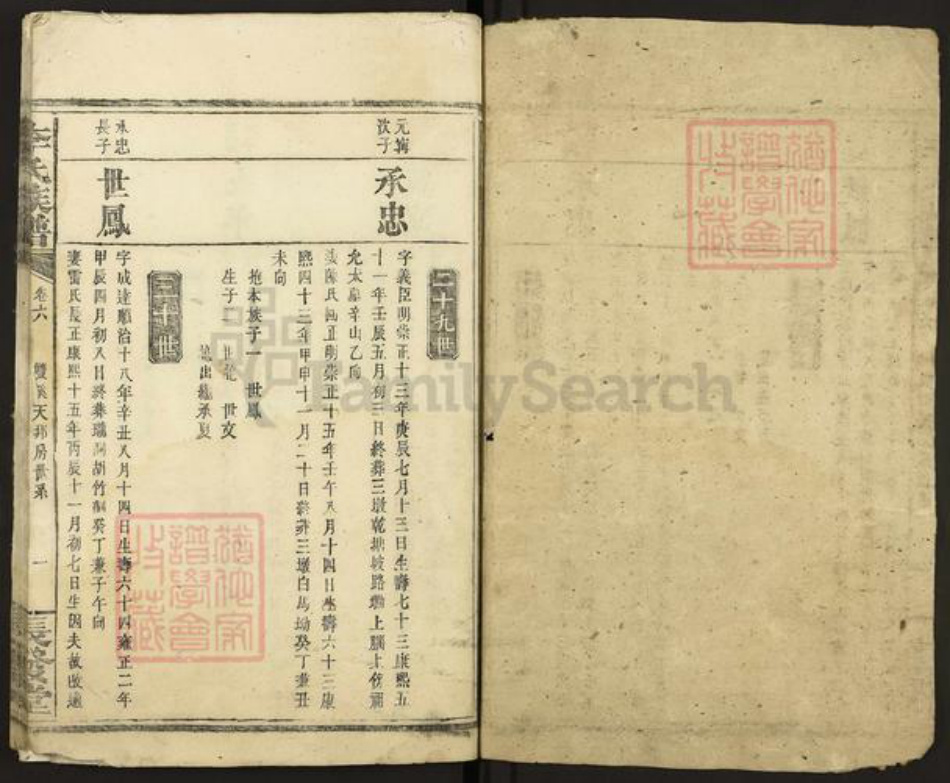 二十九世
次子
承忠
字義臣明崇正十三年庚辰七月十三日生壽七十三康熙五
十一年壬辰五月初三日終葬三墩乾塘坡路墈上
允太墓辛山乙向
陳氏明崇正十五年壬午八月十四日生壽六十三康
熙四十三年甲申十一月二十日終葬三墩白馬坳癸丁兼丑
未向
抱本族子一 世鳳
生子二 世龍 世文
出繼承夏
三十世
承忠
長子
世鳳
字成達順治十八年辛丑八月十四日生壽六十四雍正二年
甲辰四月初八日終葬胡竹癸丁兼子午向
妻雷氏長正康熙十五年丙辰十一月初七日生因夫故改適
李氏族譜
卷六
雙溪天邦房世系
一
FamilySearch
猶他家
譜學會
收藏
猶他家
譜學會
收藏